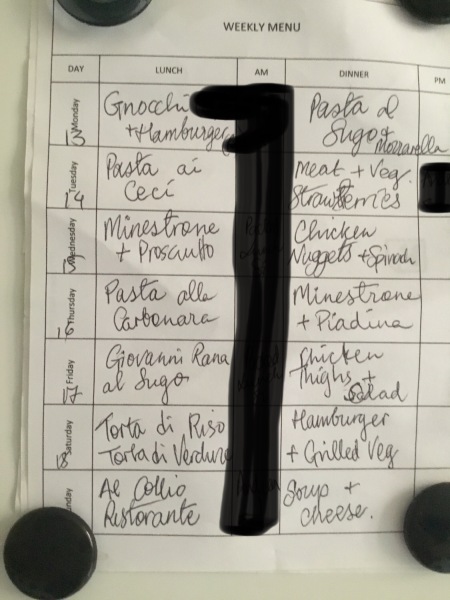 WEEKLY MENU
DAY LUNCH AM DINNER PM
Monday 13
Gnocchi
+Hamburger
Pasta al
Sugo +
Mozzarella
Tuesday 14
Pasta ai
Ceci
Meat + Veg.
Strawberries
Wednesday
Minestrone
+ Prosciutto
Chicken
Nuggets + Spinach
Thursday 16
Pasta alla
Carbonara
Minestrone
+ Piadina
Friday 17
Giovanni Rana
al Sugo
Chicken
Thighs +
Salad
Saturday 18
Torta di Riso
Torta di Verdure
Hamburger
+ Grilled Veg
Al Collio
Ristorante
Soup +
cheese.